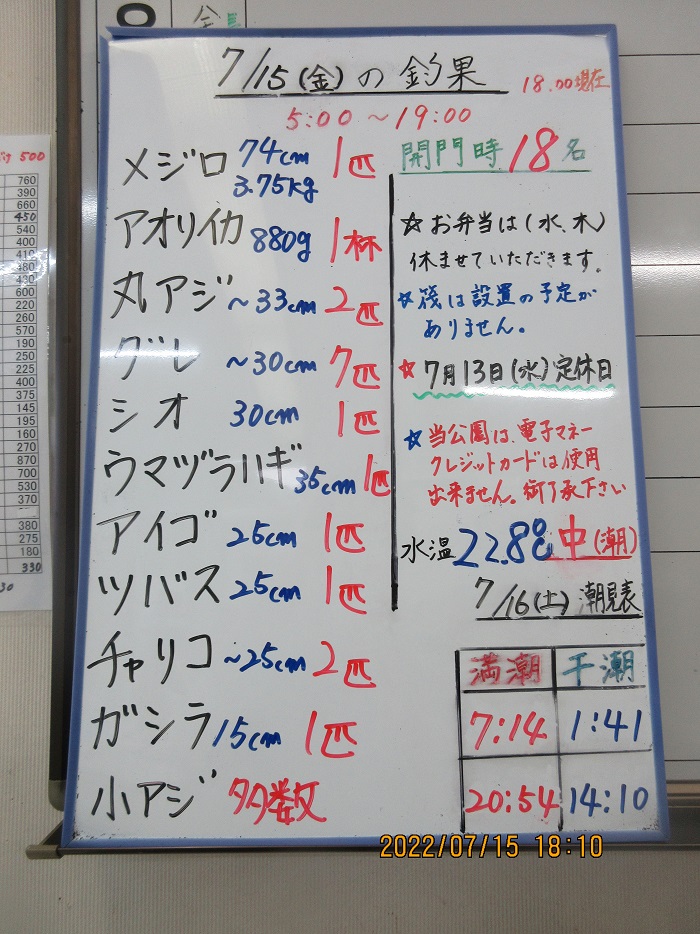 7/15(金)の釣果
18.00現在
5:00～19:00
メジロ 74cm 3.75kg 1匹
アオリイカ 880g 1杯
丸アジ ～33cm 2匹
グレ ～30cm 7匹
シオ 30cm 1匹
ウマヅラハギ 35cm 1匹
アイゴ 25cm 1匹
ツバス 25cm 1匹
チャリコ ～25cm 2匹
ガシラ 15cm 1匹
小アジ 多数
開門時 18名
☆お弁当は(水、木)
休ませていただきます。
☆筏は設置の予定が
ありません。
☆7月13日(水)定休日
☆当公園は、電子マネー
クレジットカードは使用
出来ません。御了承下さい
水温 22.8℃ 中(潮)
7/16(土) 潮見表
満潮 干潮
7:14 1:41
20:54 14:10
2022/07/15 18:10
500
760
390
660
450
540
400
410
480
430
600
220
260
570
190
250
225
400
375
145
195
160
270
870
700
530
370
380
275
180
330